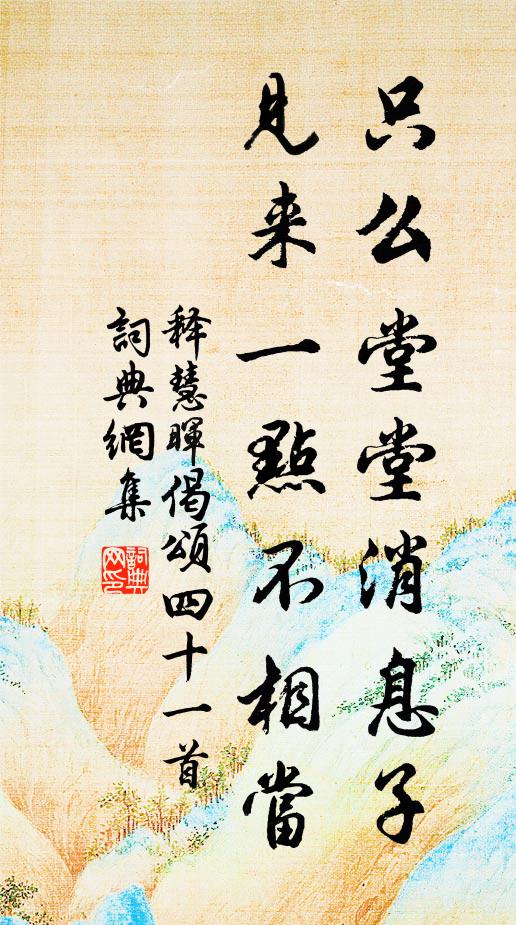 只么堂堂消息子
見来一點不相當
释慧暉偈頌四十一首
詞典網集
詞典
网印